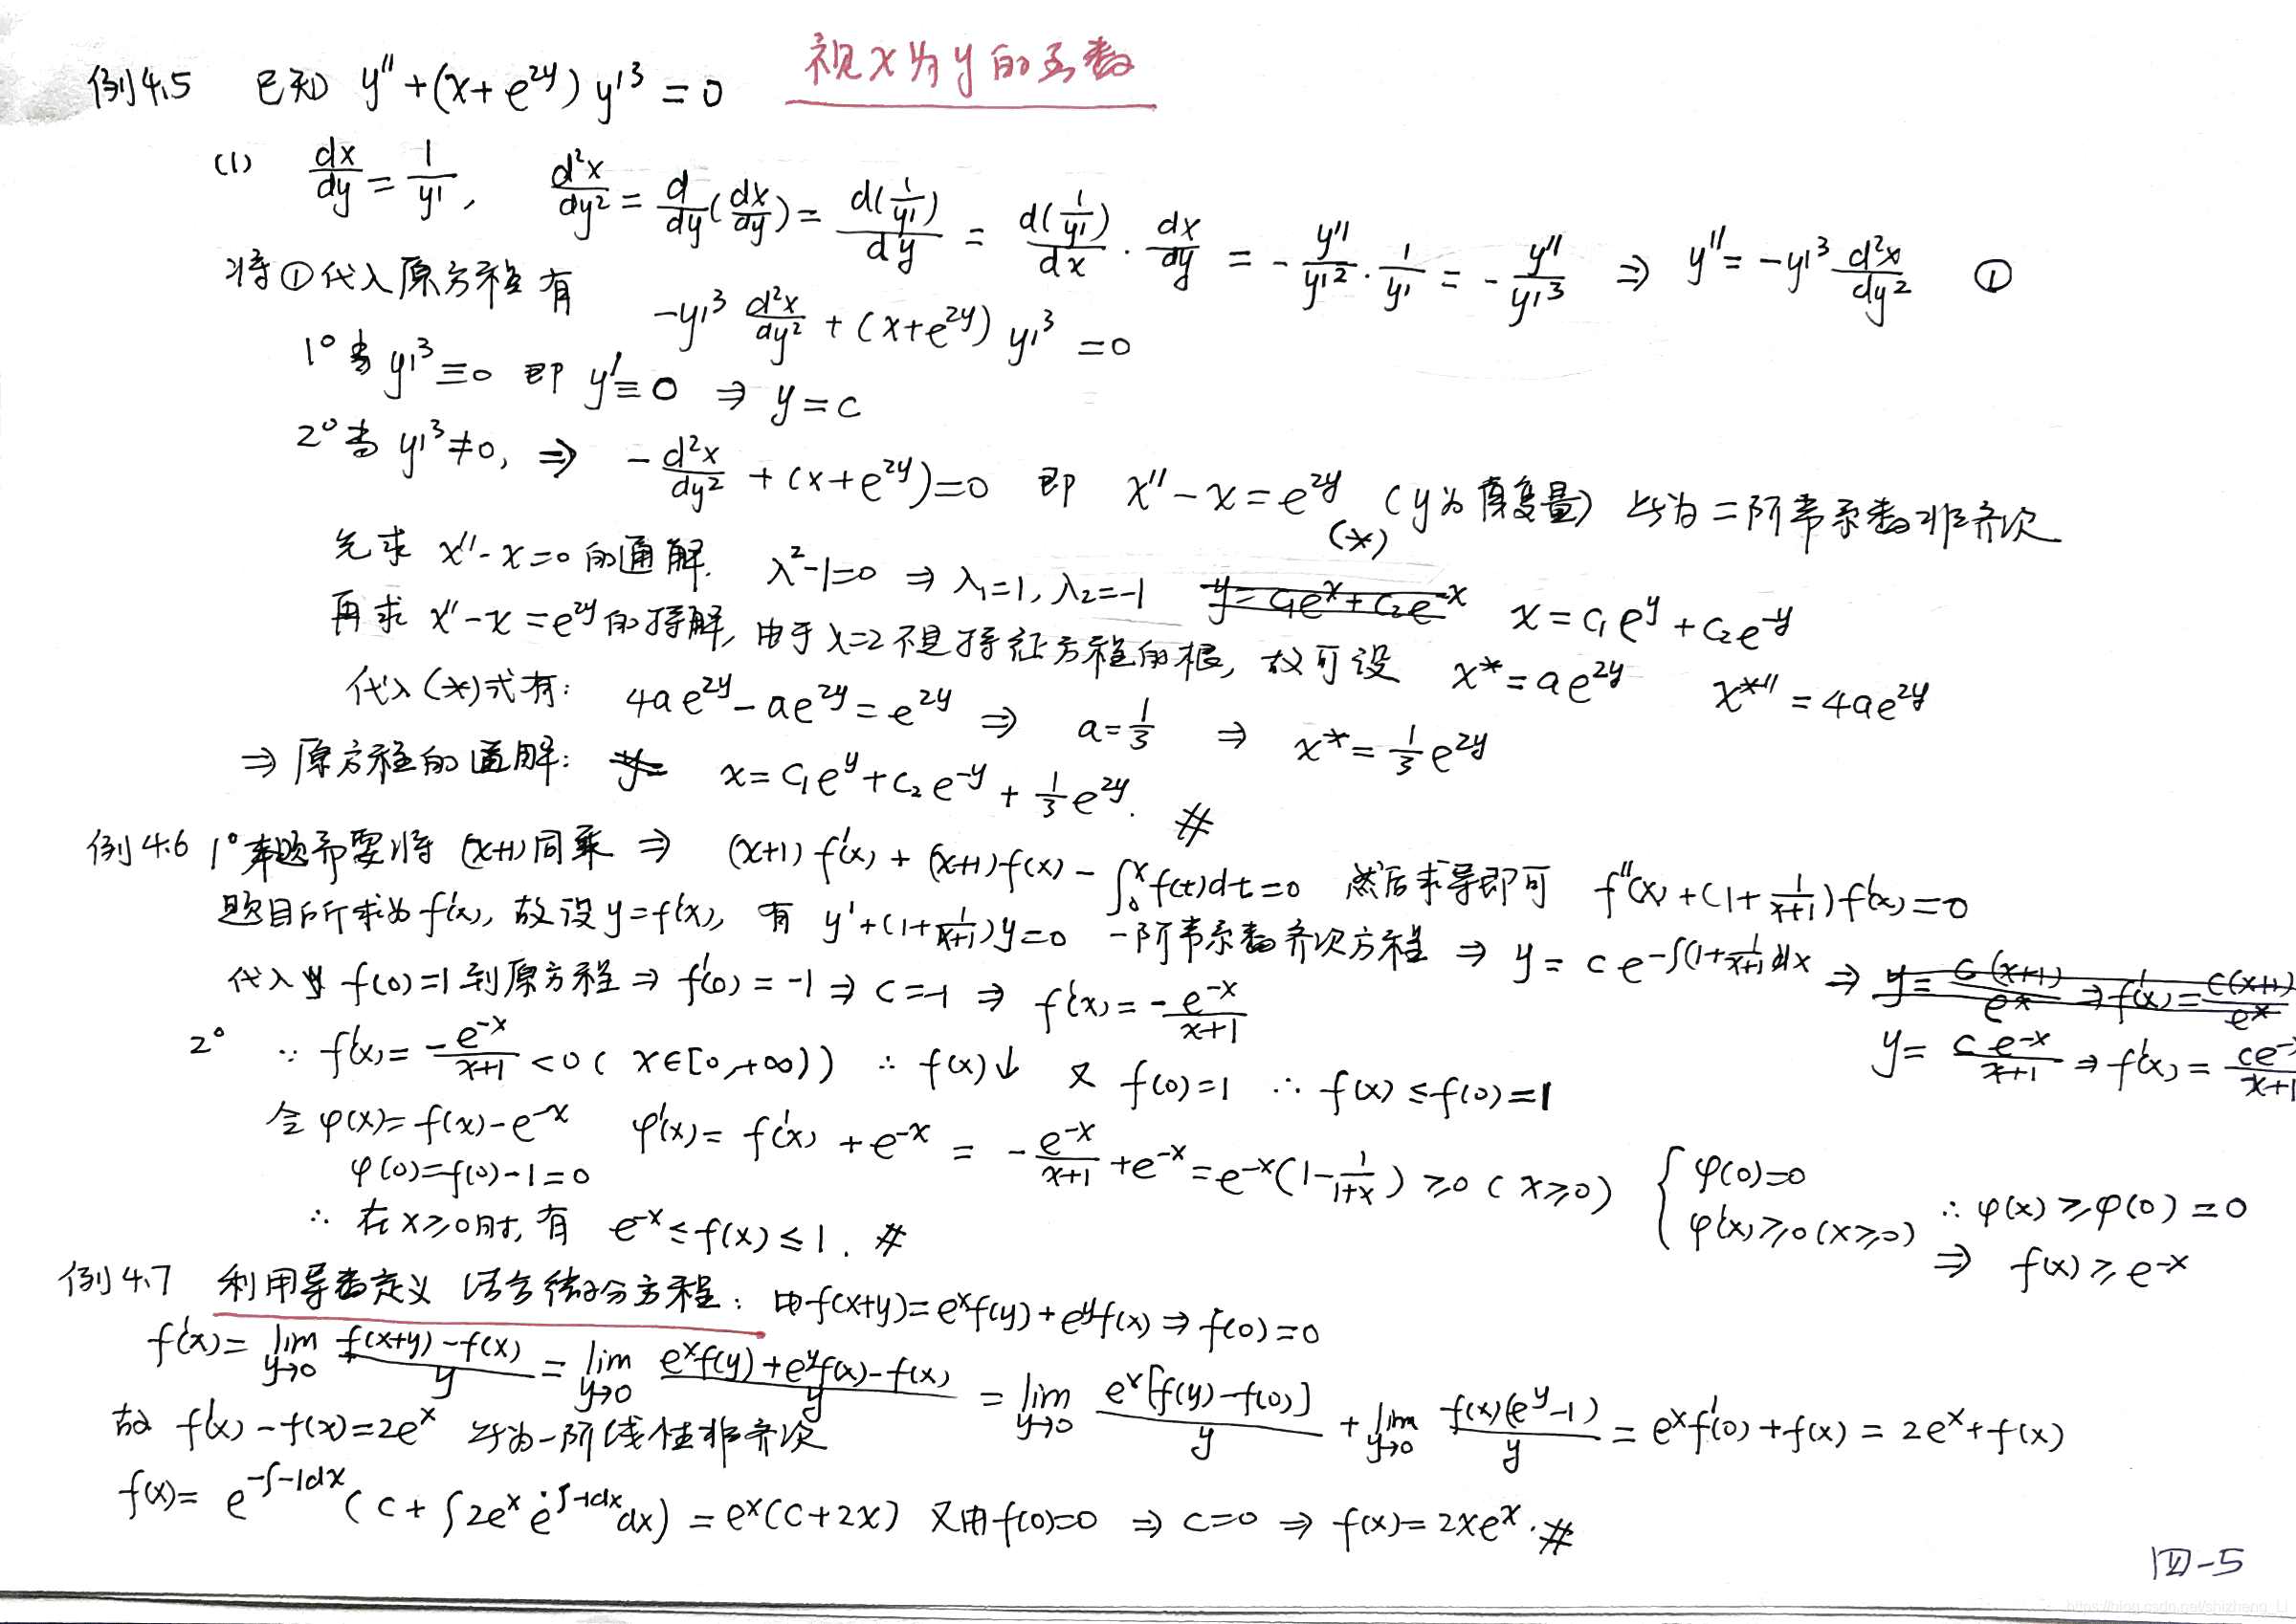 例4.5 已知 y''+(x+e^{2y})y'^3=0 视x为y的函数
(1) dx/dy=1/y', d²x/dy²=d/dy(dx/dy)=d(1/y')/dy=d(1/y')/dx·dx/dy=-y''/y'^2·1/y'=-y''/y'^3 ⇒ y''=-y'^3 d²x/dy² ①
将①代入原方程有 -y'^3 d²x/dy²+(x+e^{2y})y'^3=0
1° 当 y'^3≡0 即 y'≡0 ⇒ y=c
2° 当 y'^3≠0, ⇒ -d²x/dy²+(x+e^{2y})=0 即 x''-x=e^{2y} (y为自变量) 此为二阶常系数非齐次
(*)
先求 x''-x=0的通解. λ²-1=0 ⇒ λ₁=1, λ₂=-1 y=c₁e^x+c₂e^{-x} x=c₁e^y+c₂e^{-y}
再求 x''-x=e^{2y}的特解, 由于λ=2不是特征方程的根, 故可设 x*=ae^{2y} x*''=4ae^{2y}
代入(*)式有: 4ae^{2y}-ae^{2y}=e^{2y} ⇒ a=1/3 ⇒ x*=1/3 e^{2y}
⇒ 原方程的通解: y= x=c₁e^y+c₂e^{-y}+1/3 e^{2y}. #
例4.6 1° 本题需要将(x+1)同乘 ⇒ (x+1)f'(x)+(x+1)f(x)-∫₀^x f(t)dt=0 然后求导即可 f''(x)+(1+1/(x+1))f'(x)=0
题目所求为f'(x), 故设y=f'(x), 有 y'+(1+1/(x+1))y=0 一阶常系数齐次方程 ⇒ y=ce^{-∫(1+1/(x+1))dx} ⇒ y=c(x+1)/e^x ⇒ f'(x)=c(x+1)/e^x
代入 f(0)=1到原方程 ⇒ f'(0)=-1 ⇒ c=-1 ⇒ f'(x)=-e^{-x}/(x+1)
y=ce^{-x}/(x+1) ⇒ f'(x)=ce^{-x}/(x+1)
2° ∵ f'(x)=-e^{-x}/(x+1)<0 (x∈[0,+∞)) ∴ f(x)↓ 又 f(0)=1 ∴ f(x)≤f(0)=1
令 φ(x)=f(x)-e^{-x} φ'(x)=f'(x)+e^{-x}=-e^{-x}/(x+1)+e^{-x}=e^{-x}(1-1/(1+x))≥0 (x≥0) { φ(0)=0
φ(0)=f(0)-1=0 φ'(x)≥0(x≥0) ∴ φ(x)≥φ(0)=0
∴ 在x≥0时, 有 e^{-x}≤f(x)≤1. # ⇒ f(x)≥e^{-x}
例4.7 利用导数定义 结合微分方程: 由f(x+y)=e^x f(y)+e^y f(x) ⇒ f(0)=0
f'(x)=lim_{y→0} (f(x+y)-f(x))/y=lim_{y→0} (e^x f(y)+e^y f(x)-f(x))/y=lim_{y→0} e^x[f(y)-f(0)]/y+lim_{y→0} f(x)(e^y-1)/y=e^x f'(0)+f(x)=2e^x+f(x)
故 f'(x)-f(x)=2e^x 此为一阶线性非齐次
f(x)=e^{-∫-1dx}(c+∫2e^x·e^{∫-1dx}dx)=e^x(c+2x) 又由f(0)=0 ⇒ c=0 ⇒ f(x)=2xe^x. #
四-5